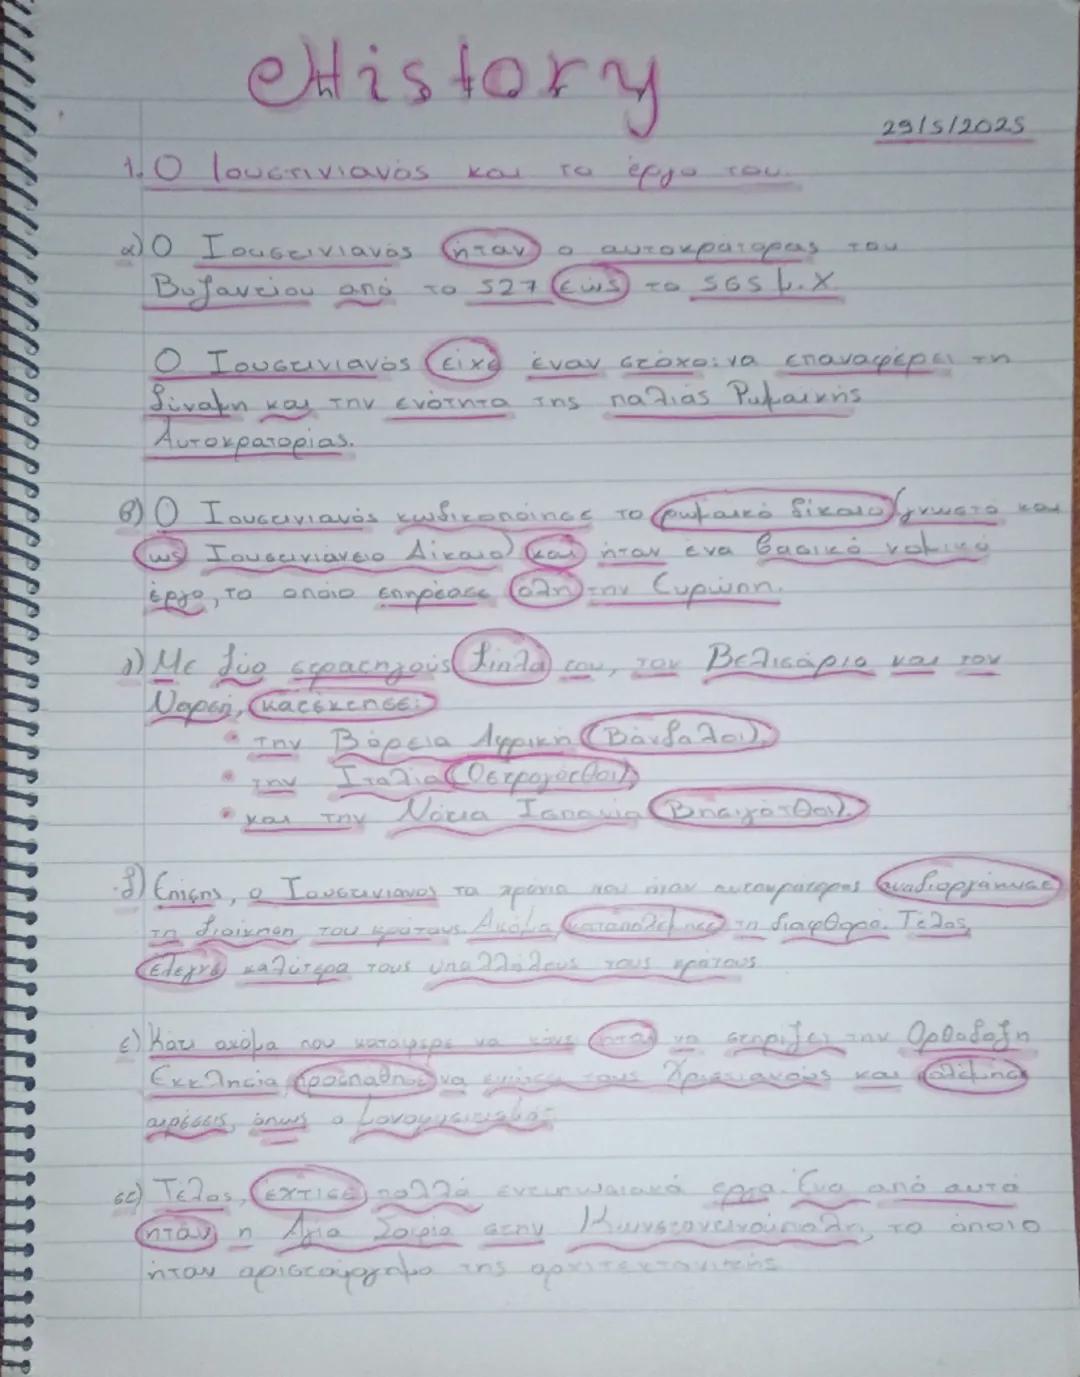 History
29/5/2025
1. Ο Ιουστινιανός και το έργο του.
α) Ο Ιουστινιανός ήταν ο αυτοκράτορας του
Βυζαντίου από το 527 έως το 565 μ.Χ.
Ο Ιουστινιανός είχε έναν στόχο: να επαναφέρει τη
δύναμη και την ενότητα της παλιάς Ρωμαϊκής
Αυτοκρατορίας.
β) Ο Ιουστινιανός κωδικοποίησε το ρωμαϊκό δίκαιο (γνωστό και
ως Ιουστινιάνειο Δίκαιο) και ήταν ένα βασικό νομικό
έργο, το οποίο επηρέασε όλη την Ευρώπη.
γ) Με δύο στρατηγούς δίπλα του, τον Βελισάριο και τον
Ναρσή, κατέκτησε:
• την Βόρεια Αφρική (Βάνδαλοι),
• την Ιταλία (Οστρογότθοι),
• και την Νότια Ισπανία (Βησιγότθοι).
δ) Επίσης, ο Ιουστινιανός τα χρόνια που ήταν αυτοκράτορας αναδιοργάνωσε
τη διοίκηση του κράτους. Ακόμα, καταπολέμησε τη διαφθορά. Τέλος,
έλεγχε καλύτερα τους υπαλλήλους τους κράτους
ε) Κάτι ακόμα που κατάφερε να κάνει ήταν να στηρίξει την Ορθόδοξη
Εκκλησία, προσπάθησε να ενώσει τους Χριστιανούς και πολέμησε
αιρέσεις, όπως ο μονοφυσιτισμός
στ) Τέλος, έχτισε πολλά εντυπωσιακά έργα. Ένα από αυτά
ήταν η Αγία Σοφία στην Κωνσταντινούπολη, το όποιο
ήταν αριστούργημα της αρχιτεκτονικής